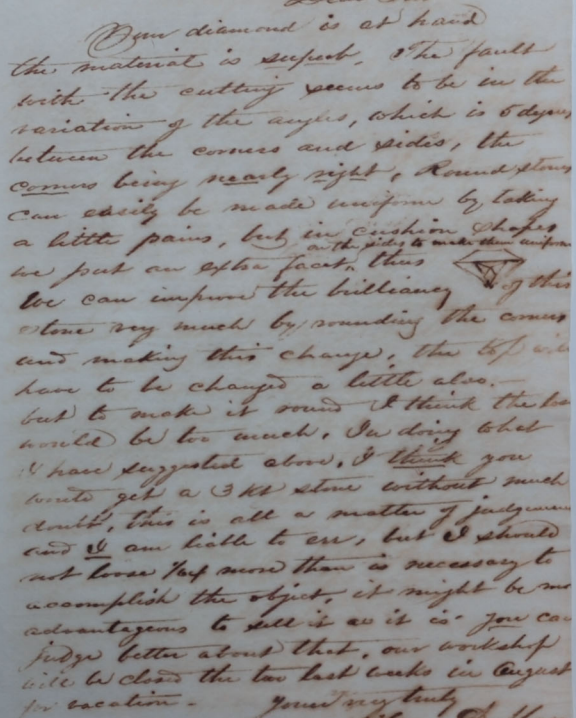 Your diamond is at hand
the material is superb, The fault
with the cutting seems to be in the
variation of the angles, which is 6 degrees
between the corners and sides, the
corners being nearly right, Round stones
can easily be made uniform by taking
a little pains, but in cushion shapes
on the sides to make them uniform
we put an extra facet, thus
We can improve the brilliancy of this
stone very much by rounding the corners
and making this change, the top will
have to be changed a little also.—
but to make it round I think the loss
would be too much, In doing what
I have suggested above, I think you
would get a 3 kt stone without much
doubt, this is all a matter of judgement
and I am liable to err, but I should
not loose 1/64 more than is necessary to
accomplish the object, it might be
advantageous to sell it as it is. you can
judge better about that, our workshop
will be closed the two last weeks in August
for vacation — Yours very truly